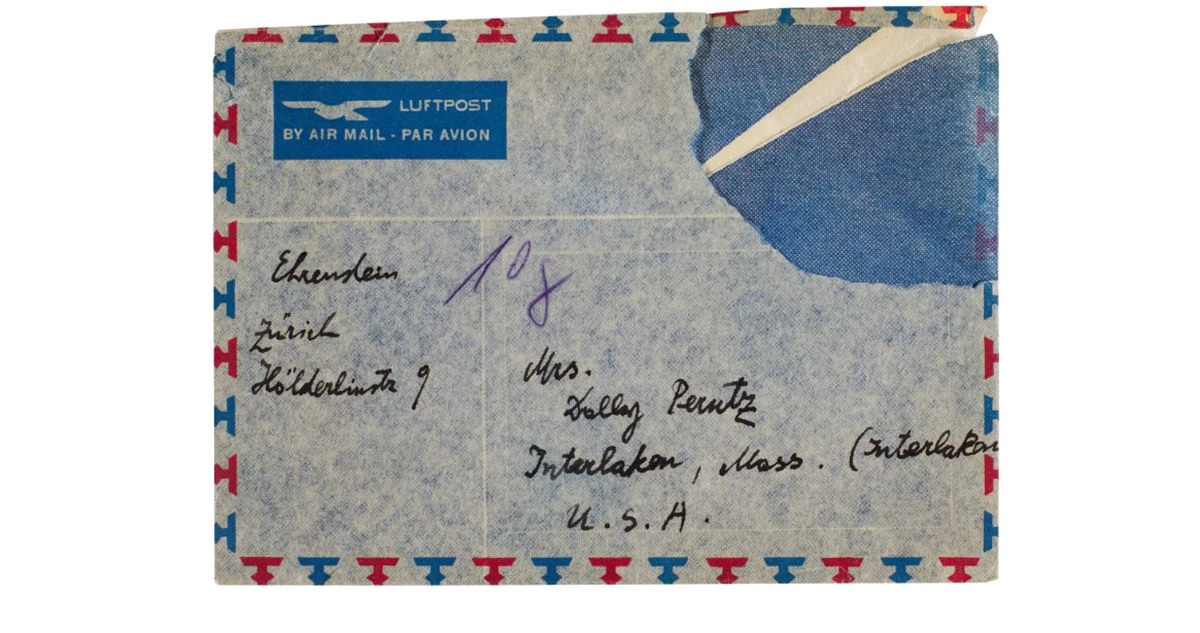 LUFTPOST
BY AIR MAIL - PAR AVION
10g
Ehrenstein
Zürich
Hölderlinstr 9
Mrs.
Dolly Perutz
Interlaken, Mass. (Interlaken
U.S.A.